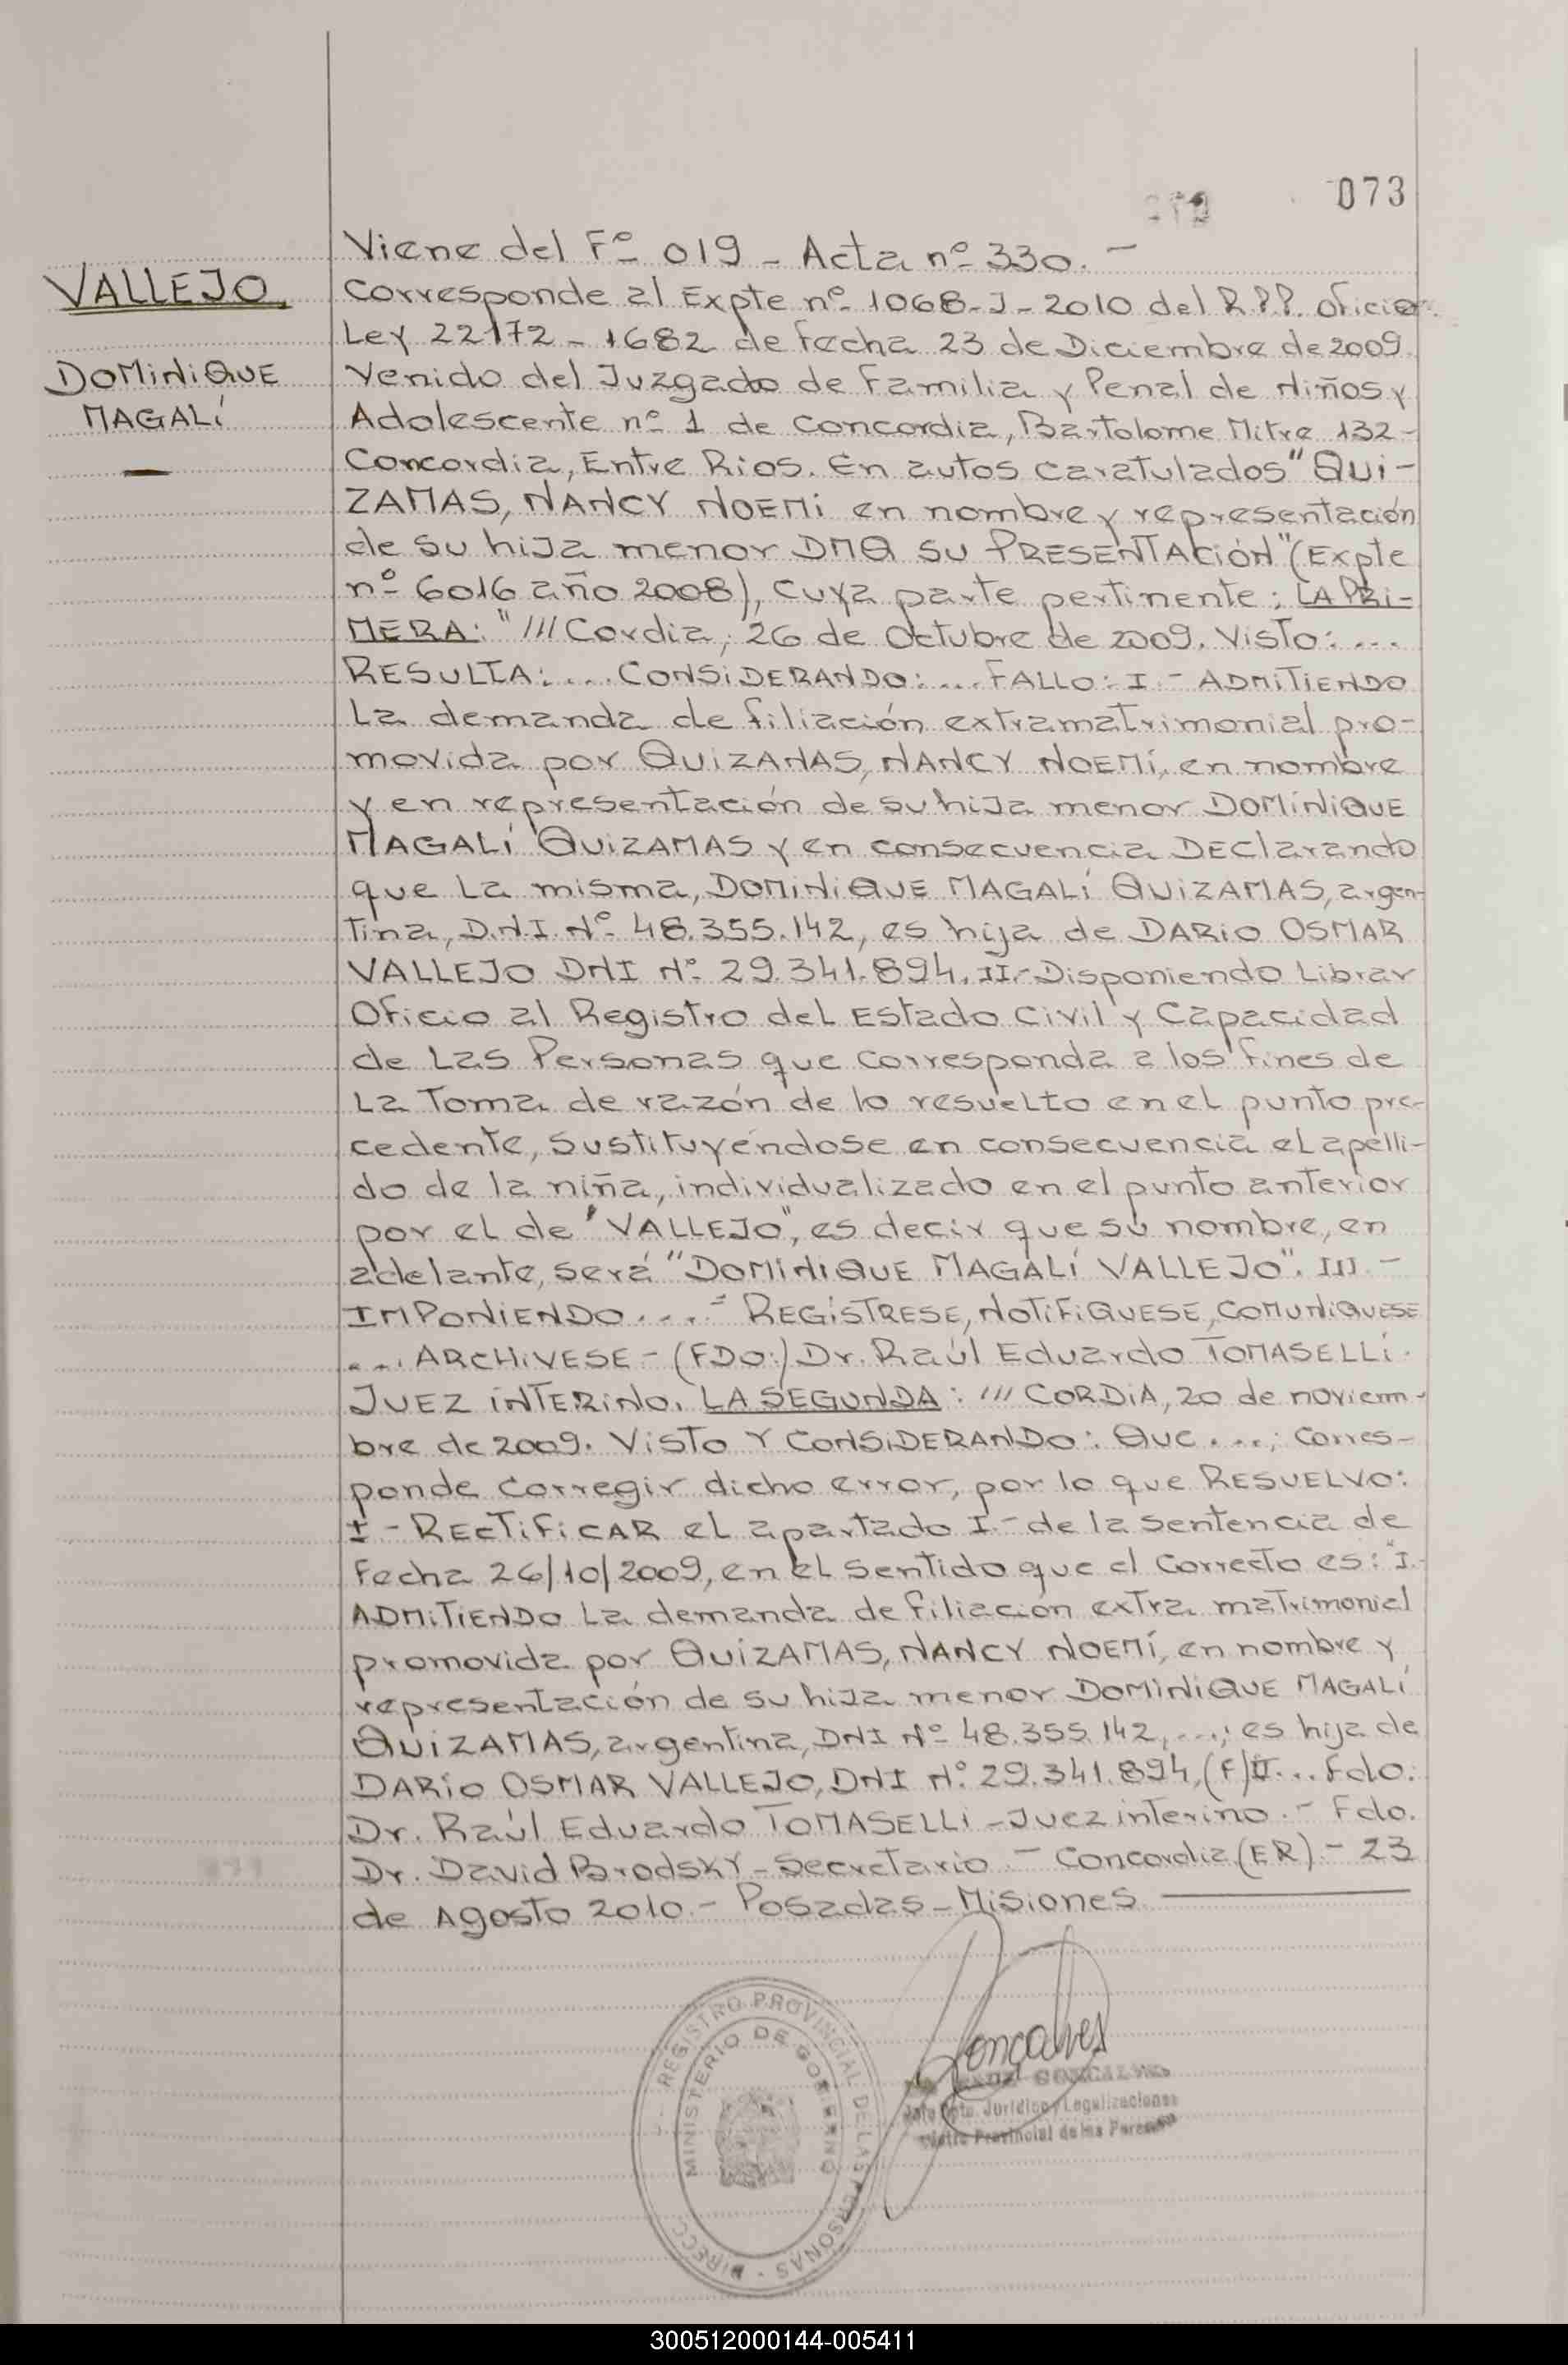 073
Viene del Fº 019 - Acta nº 330. -
VALLEJO
DOMINIQUE
MAGALÍ
Corresponde al Expte nº 1068-J-2010 del R.P.P. oficio
Ley 22172 - 1682 de fecha 23 de Diciembre de 2009.
Venido del Juzgado de Familia y Penal de Niños y
Adolescente nº 1 de Concordia, Bartolome Mitre 132-
Concordia, Entre Rios. En autos caratulados "QUI-
ZAMAS, NANCY NOEMI en nombre y representación
de su hija menor DMQ SU PRESENTACIÓN" (Expte
nº 6016 año 2008), cuya parte pertinente: LA PRI-
MERA: "/// Cordia, 26 de Octubre de 2009. Visto: ...
RESULTA: ... CONSIDERANDO: ... FALLO: I - ADMITIENDO
La demanda de filiación extramatrimonial pro-
movida por QUIZAMAS, NANCY NOEMÍ, en nombre
y en representación de su hija menor DOMINIQUE
MAGALÍ QUIZAMAS y en consecuencia DECLarando
que La misma, DOMINIQUE MAGALÍ QUIZAMAS, argen-
tina, D.N.I. Nº 48.355.142, es hija de DARIO OSMAR
VALLEJO DNI Nº 29.341.894. II.- Disponiendo Librar
Oficio al Registro del Estado Civil y Capacidad
de Las Personas que corresponda a los fines de
La Toma de razón de lo resuelto en el punto pre-
cedente, sustituyéndose en consecuencia el apelli-
do de la niña, individualizado en el punto anterior
por el de "VALLEJO", es decir que su nombre, en
adelante, será "DOMINIQUE MAGALÍ VALLEJO". III. -
IMPONIENDO .... - REGÍSTRESE, NOTIFIQUESE, COMUNIQUESE
.... ARCHIVESE - (FDO:) Dr. Raúl Eduardo TOMASELLI.
JUEZ INTERINO. LA SEGUNDA: /// CORDIA, 20 de noviem-
bre de 2009. VISTO Y CONSIDERANDO: Que ....; Corres-
ponde corregir dicho error, por lo que RESUELVO:
I - RECTIFICAR el apartado I.- de la sentencia de
Fecha 26/10/2009, en el sentido que el Correcto es: "I.-
ADMITIENDO La demanda de filiación extra matrimonial
promovida por QUIZAMAS, NANCY NOEMÍ, en nombre y
representación de su hija menor DOMINIQUE MAGALÍ
QUIZAMAS, argentina, DNI Nº 48.355.142, ...; es hija de
DARIO OSMAR VALLEJO, DNI Nº 29.341.894, (F) II... Fdo.
Dr. Raúl Eduardo TOMASELLI - Juez interino. - Fdo.
Dr. David Brodsky - Secretario - Concordia (ER) - 23
de Agosto 2010. - Posadas - Misiones
DIRECC. - REGISTRO PROVINCIAL DE LAS PERSONAS -
MINISTERIO DE GOBIERNO
Goncalves
GONCALVES
Jurídico y Legalizaciones
Provincial de las Personas
300512000144-005411